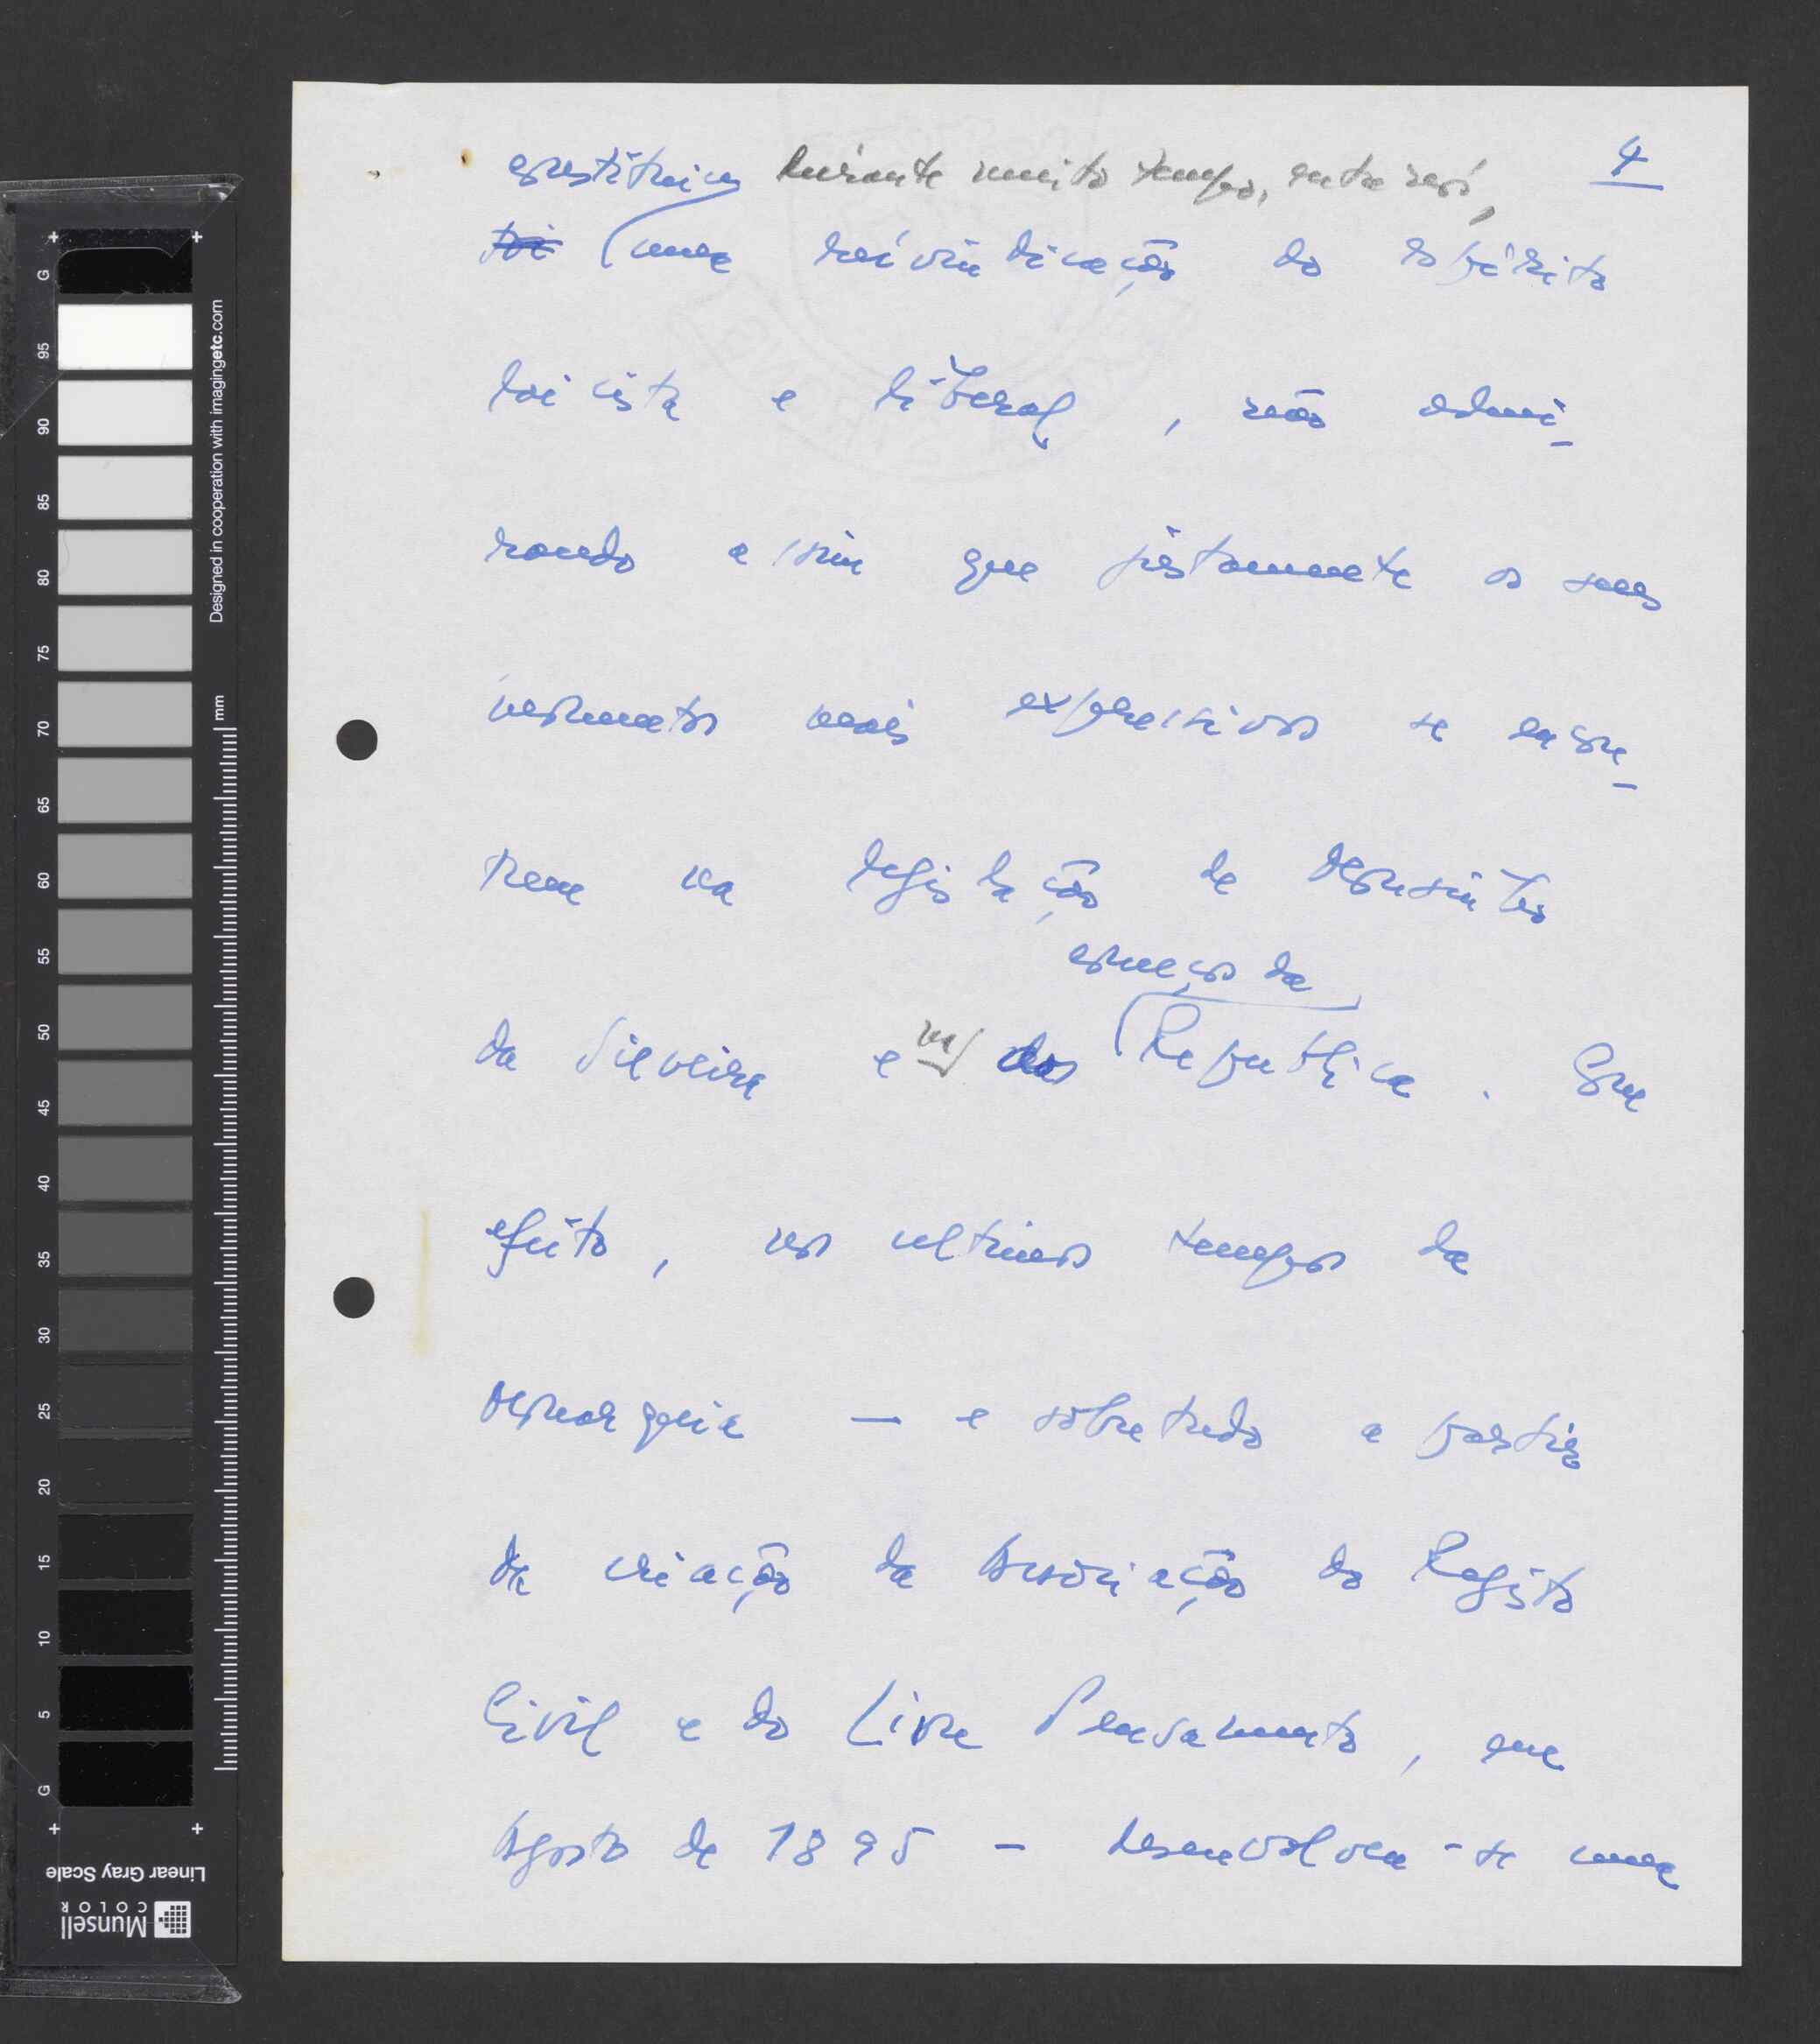 4
constituiu durante muito tempo, entre nós,
foi uma reivindicação do espírito
laicista e liberal, não admi-
rando assim que justamente os seus
momentos mais expressivos se encon-
trem na legislação de Mousinho
da Silveira e na do
começo da
República. Com
efeito, nos ultimos tempos da
Monarquia — e sobretudo a partir
da criação da Associação do Registo
Civil e do Livre Pensamento, em
Agosto de 1895 — desenvolveu-se uma
Designed in cooperation with imagingetc.com
mm
G
95
90
85
80
75
70
65
60
55
50
45
40
35
30
25
20
15
10
5
G
Linear Gray Scale
Munsell
COLOR